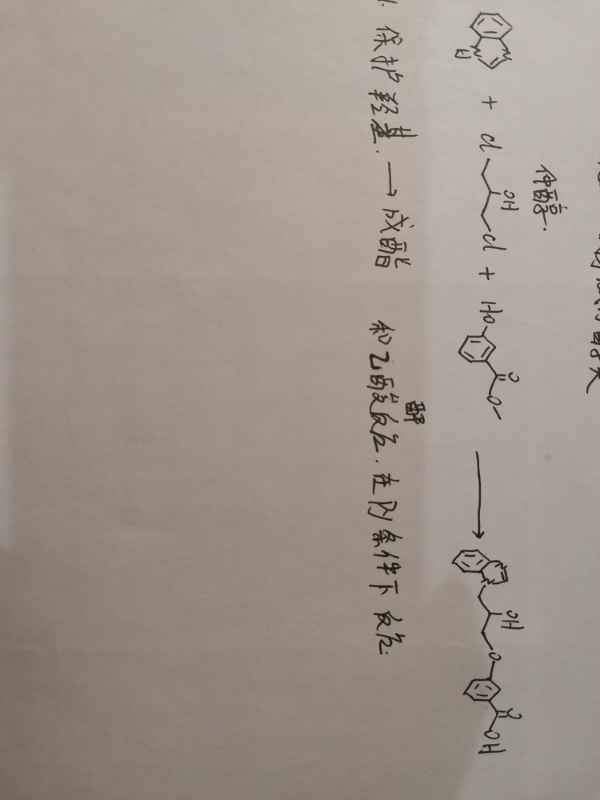 仲醇.
N N H + Cl OH Cl + HO O O → N N OH O O OH
1. 保护羟基. → 成酯 和乙酸酐反应. 在Py条件下反应.